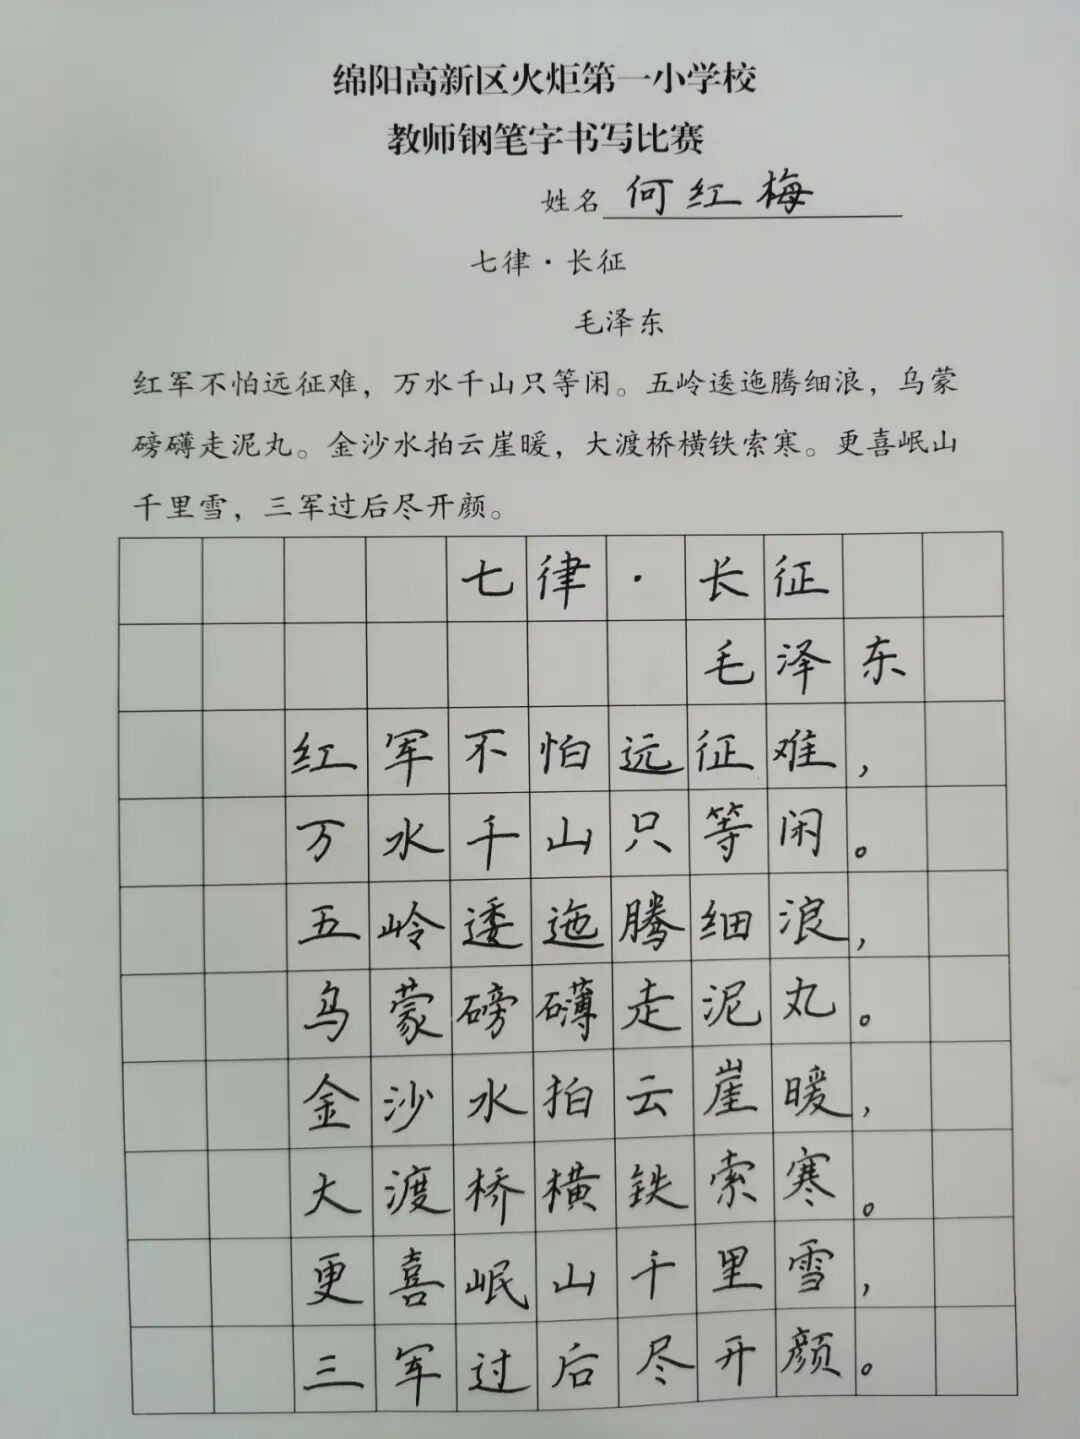 绵阳高新区火炬第一小学校
教师钢笔字书写比赛
姓名 何红梅
七律·长征
毛泽东
红军不怕远征难，万水千山只等闲。五岭逶迤腾细浪，乌蒙
磅礴走泥丸。金沙水拍云崖暖，大渡桥横铁索寒。更喜岷山
千里雪，三军过后尽开颜。
七律·长征
毛泽东
红军不怕远征难，
万水千山只等闲。
五岭逶迤腾细浪，
乌蒙磅礴走泥丸。
金沙水拍云崖暖，
大渡桥横铁索寒。
更喜岷山千里雪，
三军过后尽开颜。